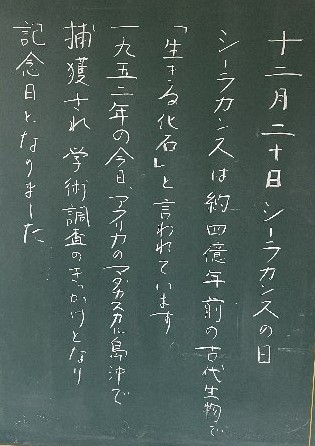 十二月二十日シーラカンスの日
シーラカンスは約四億年前の古代生物で
「生きる化石」と言われています
一九五二年の今日、アフリカのマダガスカル島沖で
捕獲され学術調査のきっかけとなり
記念日となりました